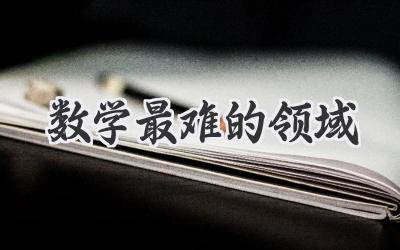 数学最难的领域